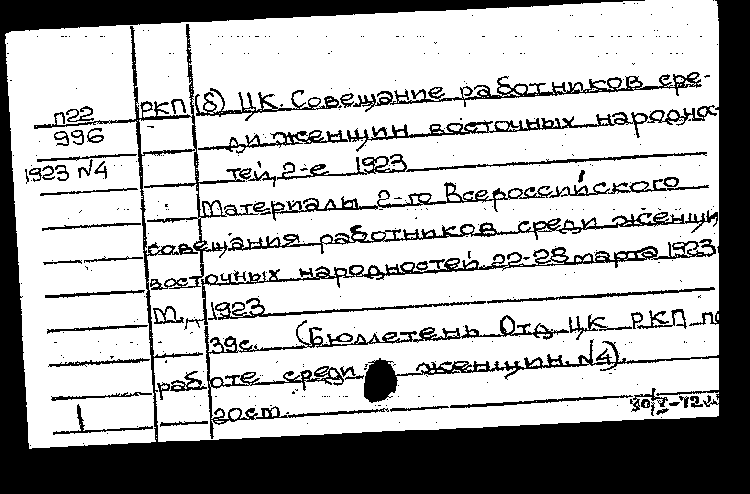 п22 РКП (б) ЦК. Совещание работников сре-
996 ди женщин восточных народнос-
1923 №4 тей, 2-е 1923
Материалы 2-го Всероссийского
совещания работников среди женщи
восточных народностей 22-28 марта 1923
М., 1923
39с. (Бюллетень Отд ЦК РКП по
работе среди женщин. №4).
1